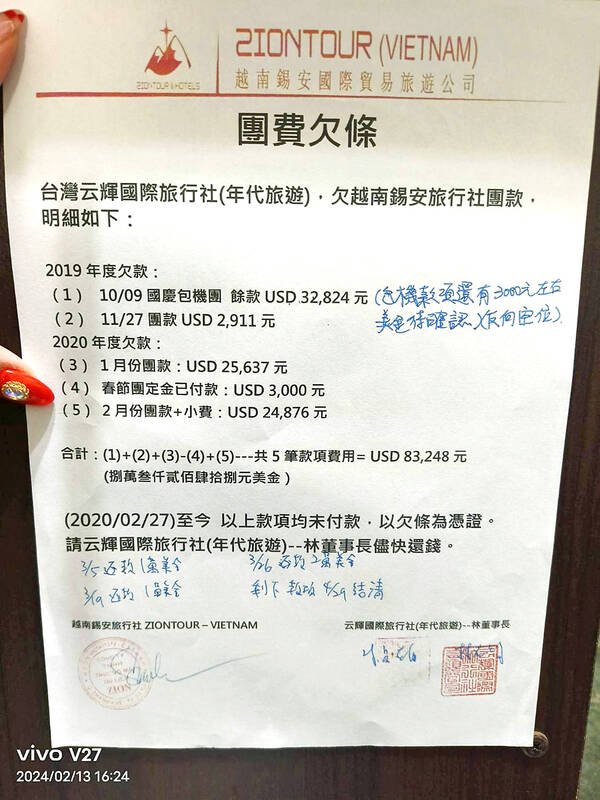 ZIONTOUR & HOTELS
ZIONTOUR (VIETNAM)
越南錫安國際貿易旅遊公司
團費欠條
台灣云輝國際旅行社(年代旅遊)，欠越南錫安旅行社團款，
明細如下：
2019 年度欠款：
(1) 10/09 國慶包機團 餘款 USD 32,824 元 (包機款項還有3000元左右
(2) 11/27 團款 USD 2,911 元 美金待確認)
2020 年度欠款：
(3) 1 月份團款：USD 25,637 元
(4) 春節團定金已付款：USD 3,000 元
(5) 2 月份團款+小費：USD 24,876 元
合計：(1)+(2)+(3)-(4)+(5)---共 5 筆款項費用= USD 83,248 元
(捌萬叁仟貳佰肆拾捌元美金)
(2020/02/27)至今 以上款項均未付款，以欠條為憑證。
請云輝國際旅行社(年代旅遊)--林董事長儘快還錢。
3/5 还款1萬美金 3/26 还款2萬美金
3/19 还款1萬美金 剩下 4/29 結清
越南錫安旅行社 ZIONTOUR – VIETNAM 云輝國際旅行社(年代旅遊)--林董事長
ZION
vivo V27
2024/02/13 16:24